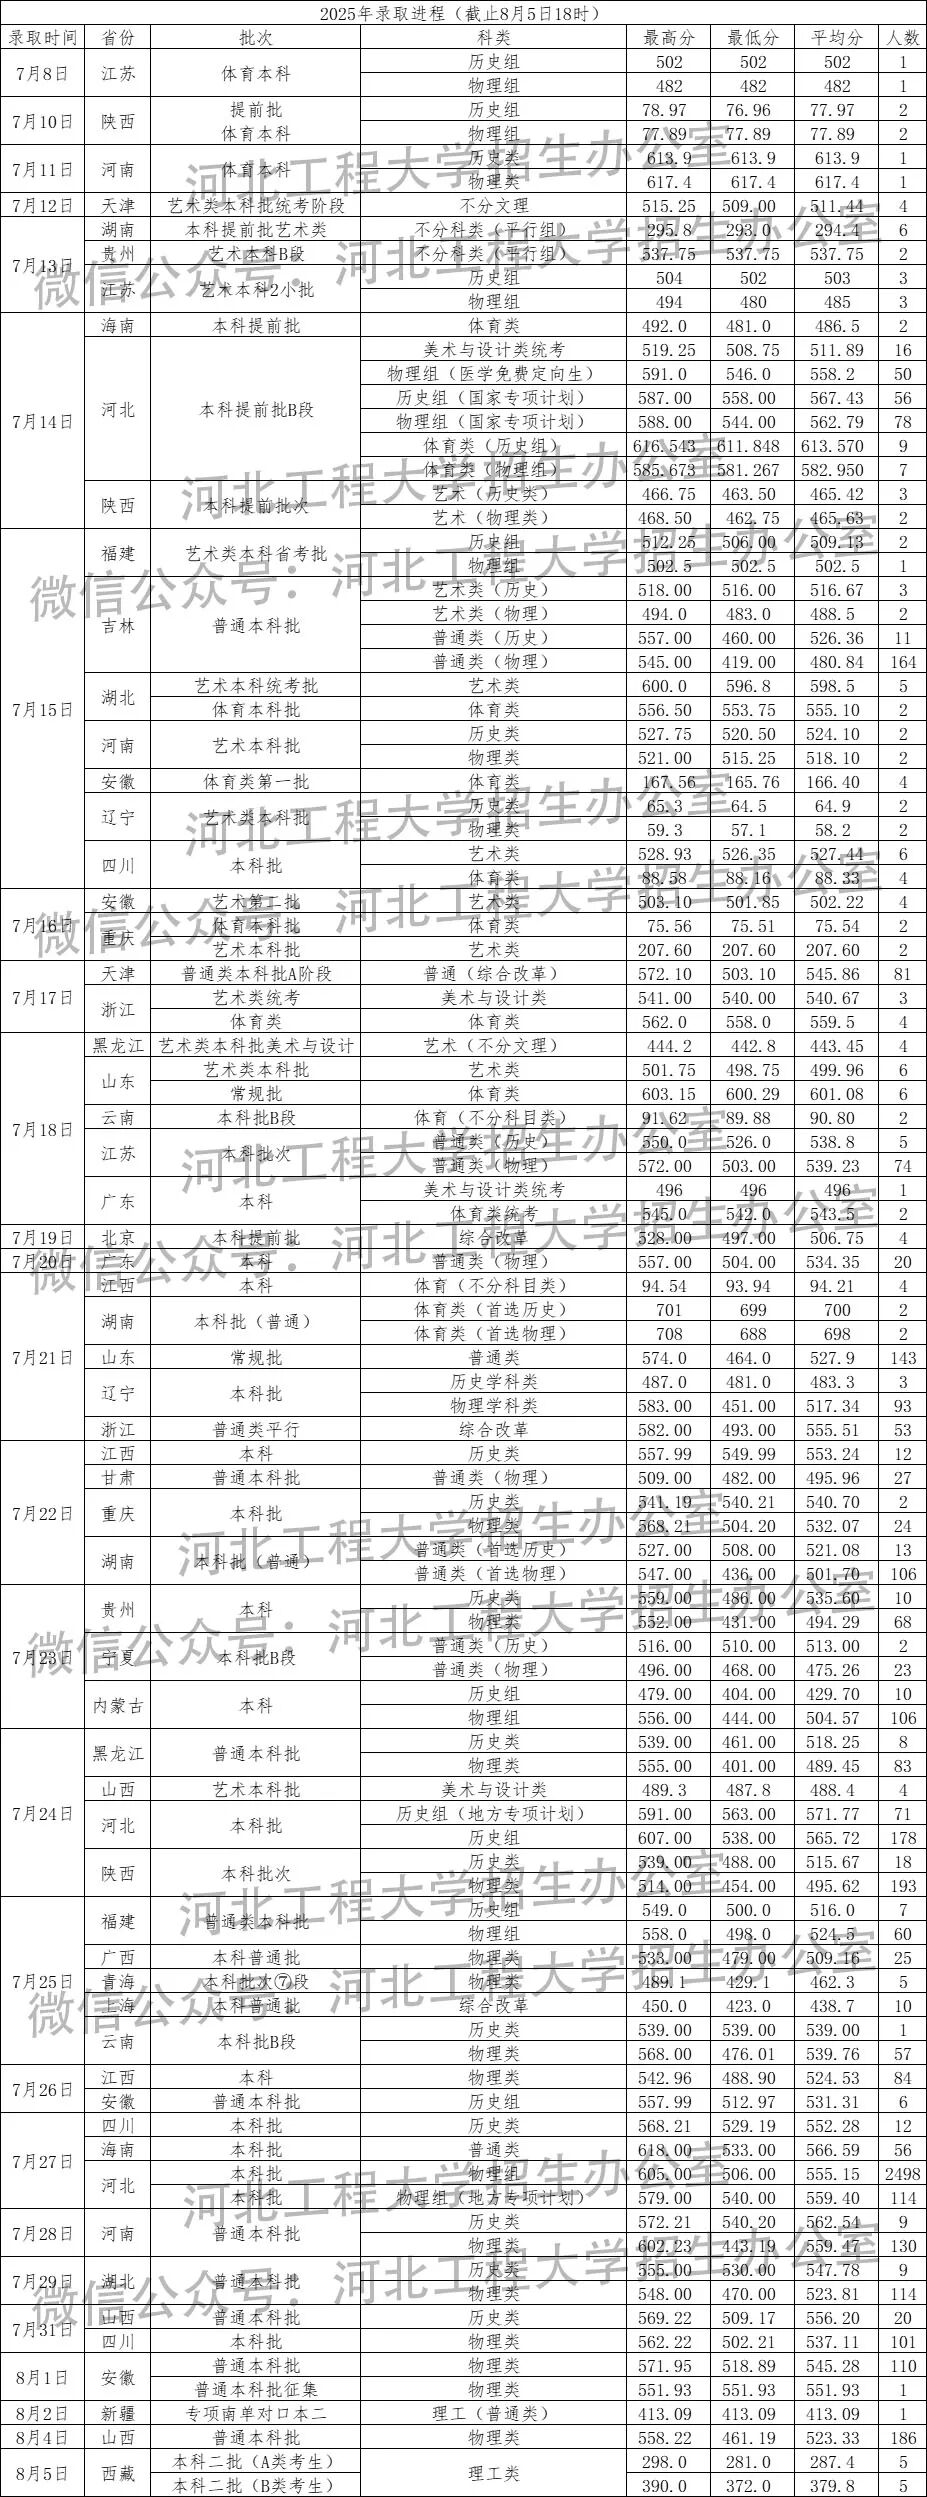 2025年录取进程（截止8月5日18时）
录取时间 省份 批次 科类 最高分 最低分 平均分 人数
7月8日 江苏 体育本科 历史组 502 502 502 1
物理组 482 482 482 1
7月10日 陕西 提前批 体育本科 历史组 78.97 76.96 77.97 2
物理组 77.89 77.89 77.89 2
7月11日 河南 体育本科 历史类 613.9 613.9 613.9 1
物理类 617.4 617.4 617.4 1
7月12日 天津 艺术类本科批统考阶段 不分文理 515.25 509.00 511.44 4
7月13日 湖南 本科提前批艺术类 不分科类（平行组） 295.8 293.0 294.4 6
贵州 艺术本科B段 不分科类（平行组） 537.75 537.75 537.75 2
江苏 艺术本科2小批 历史组 504 502 503 3
物理组 494 480 485 3
7月14日 海南 本科提前批 体育类 492.0 481.0 486.5 2
河北 本科提前批B段 美术与设计类统考 519.25 508.75 511.89 16
物理组（医学免费定向生） 591.0 546.0 558.2 50
历史组（国家专项计划） 587.00 558.00 567.43 56
物理组（国家专项计划） 588.00 544.00 562.79 78
体育类（历史组） 616.543 611.848 613.570 9
体育类（物理组） 585.673 581.267 582.950 7
陕西 本科提前批次 艺术（历史类） 466.75 463.50 465.42 3
艺术（物理类） 468.50 462.75 465.63 2
7月15日 福建 艺术类本科省考批 历史组 512.25 506.00 509.13 2
物理组 502.5 502.5 502.5 1
吉林 普通本科批 艺术类（历史） 518.00 516.00 516.67 3
艺术类（物理） 494.0 483.0 488.5 2
普通类（历史） 557.00 460.00 526.36 11
普通类（物理） 545.00 419.00 480.84 164
湖北 艺术本科统考批 艺术类 600.0 596.8 598.5 5
体育本科批 体育类 556.50 553.75 555.10 2
河南 艺术本科批 历史类 527.75 520.50 524.10 2
物理类 521.00 515.25 518.10 2
安徽 体育类第一批 体育类 167.56 165.76 166.40 4
辽宁 艺术类本科批 历史类 65.3 64.5 64.9 2
物理类 59.3 57.1 58.2 2
四川 本科批 艺术类 528.93 526.35 527.44 6
体育类 88.58 88.16 88.33 4
7月16日 安徽 艺术第二批 艺术类 503.10 501.85 502.22 4
重庆 体育本科批 体育类 75.56 75.51 75.54 2
艺术本科批 艺术类 207.60 207.60 207.60 2
7月17日 天津 普通类本科批A阶段 普通（综合改革） 572.10 503.10 545.86 81
浙江 艺术类统考 美术与设计类 541.00 540.00 540.67 3
体育类 体育类 562.0 558.0 559.5 4
7月18日 黑龙江 艺术类本科批美术与设计 艺术（不分文理） 444.2 442.8 443.45 4
山东 艺术类本科批 艺术类 501.75 498.75 499.96 6
常规批 体育类 603.15 600.29 601.08 6
云南 本科批B段 体育（不分科目类） 91.62 89.88 90.80 2
江苏 本科批次 普通类（历史） 550.0 526.0 538.8 5
普通类（物理） 572.00 503.00 539.23 74
广东 本科 美术与设计类统考 496 496 496 1
体育类统考 545.0 542.0 543.5 2
7月19日 北京 本科提前批 综合改革 528.00 497.00 506.75 4
7月20日 广东 本科 普通类（物理） 557.00 504.00 534.35 20
7月21日 江西 本科 体育（不分科目类） 94.54 93.94 94.21 4
湖南 本科批（普通） 体育类（首选历史） 701 699 700 2
体育类（首选物理） 708 688 698 2
山东 常规批 普通类 574.0 464.0 527.9 143
辽宁 本科批 历史学科类 487.0 481.0 483.3 3
物理学科类 583.00 451.00 517.34 93
浙江 普通类平行 综合改革 582.00 493.00 555.51 53
7月22日 江西 本科 历史类 557.99 549.99 553.24 12
甘肃 普通本科批 普通类（物理） 509.00 482.00 495.96 27
重庆 本科批 历史类 541.19 540.21 540.70 2
物理类 568.21 504.20 532.07 24
湖南 本科批（普通） 普通类（首选历史） 527.00 508.00 521.08 13
普通类（首选物理） 547.00 436.00 501.70 106
7月23日 贵州 本科 历史类 559.00 486.00 535.60 10
物理类 552.00 431.00 494.29 68
宁夏 本科批B段 普通类（历史） 516.00 510.00 513.00 2
普通类（物理） 496.00 468.00 475.26 23
内蒙古 本科 历史组 479.00 404.00 429.70 10
物理组 556.00 444.00 504.57 106
7月24日 黑龙江 普通本科批 历史类 539.00 461.00 518.25 8
物理类 555.00 401.00 489.45 83
山西 艺术本科批 美术与设计类 489.3 487.8 488.4 4
河北 本科批 历史组（地方专项计划） 591.00 563.00 571.77 71
历史组 607.00 538.00 565.72 178
陕西 本科批次 历史类 539.00 488.00 515.67 18
物理类 514.00 454.00 495.62 193
7月25日 福建 普通类本科批 历史组 549.0 500.0 516.0 7
物理组 558.0 498.0 524.5 60
广西 本科普通批 物理类 533.00 479.00 509.16 25
青海 本科批次⑦段 物理类 489.1 429.1 462.3 5
上海 本科普通批 综合改革 450.0 423.0 438.7 10
云南 本科批B段 历史类 539.00 539.00 539.00 1
物理类 568.00 476.01 539.76 57
7月26日 江西 本科 物理类 542.96 488.90 524.53 84
安徽 普通本科批 历史组 557.99 512.97 531.31 6
7月27日 四川 本科批 历史类 568.21 529.19 552.28 12
海南 本科批 普通类 618.00 533.00 566.59 56
河北 本科批 物理组 605.00 506.00 555.15 2498
本科批 物理组（地方专项计划） 579.00 540.00 559.40 114
7月28日 河南 普通本科批 历史类 572.21 540.20 562.54 9
物理类 602.23 443.19 559.47 130
7月29日 湖北 普通本科批 历史类 555.00 530.00 547.78 9
物理类 548.00 470.00 523.81 114
7月31日 山西 普通本科批 历史类 569.22 509.17 556.20 20
四川 本科批 物理类 562.22 502.21 537.11 101
8月1日 安徽 普通本科批 物理类 571.95 518.89 545.28 110
普通本科批征集 物理类 551.93 551.93 551.93 1
8月2日 新疆 专项南单对口本二 理工（普通类） 413.09 413.09 413.09 1
8月4日 山西 普通本科批 物理类 558.22 461.19 523.33 186
8月5日 西藏 本科二批（A类考生） 理工类 298.0 281.0 287.4 5
本科二批（B类考生） 390.0 372.0 379.8 5
微信公众号：河北工程大学招生办公室
河北工程大学招生办公室